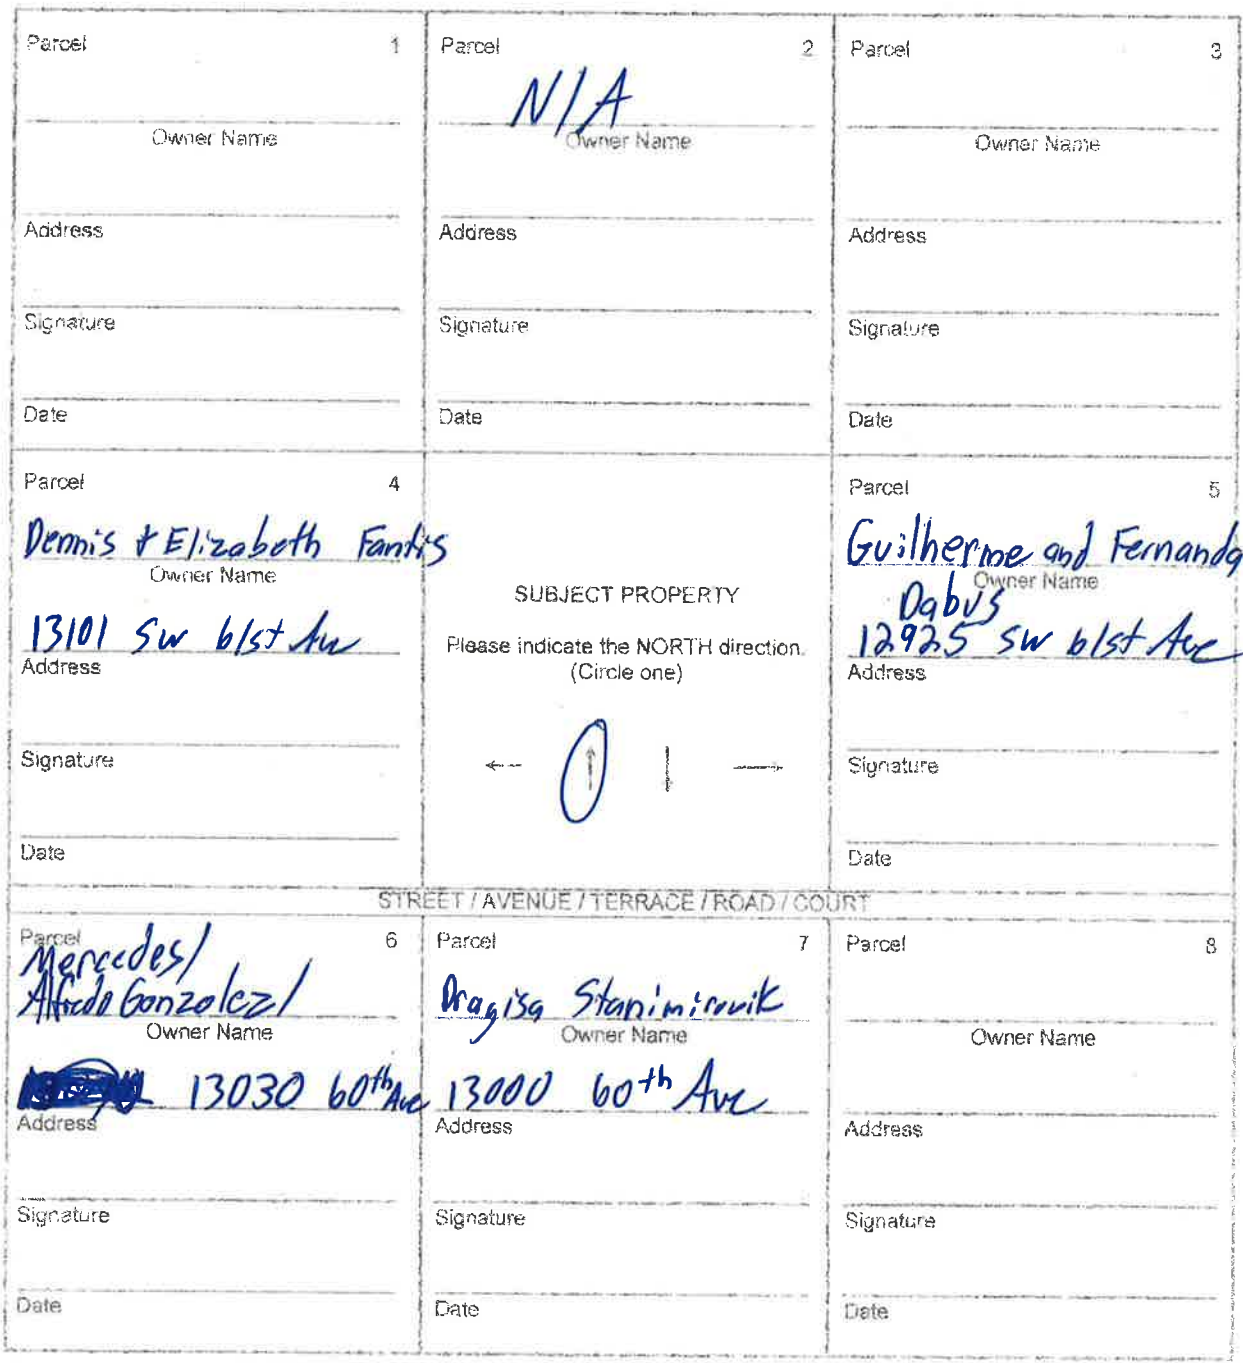 Parcel 1
Owner Name
Address
Signature
Date
Parcel 2
N/A
Owner Name
Address
Signature
Date
Parcel 3
Owner Name
Address
Signature
Date
Parcel 4
Dennis & Elizabeth Fantis
Owner Name
13101 SW 61st Ave
Address
Signature
Date
SUBJECT PROPERTY
Please indicate the NORTH direction.
(Circle one)
← ↑ ↓ →
Parcel 5
Guilherme and Fernanda
Owner Name
Dabus
12925 SW 61st Ave
Address
Signature
Date
STREET / AVENUE / TERRACE / ROAD / COURT
Parcel 6
Mercedes/
Alfredo Gonzalez/
Owner Name
13030 60th Ave
Address
Signature
Date
Parcel 7
Dragisa Stanimirovik
Owner Name
13000 60th Ave
Address
Signature
Date
Parcel 8
Owner Name
Address
Signature
Date